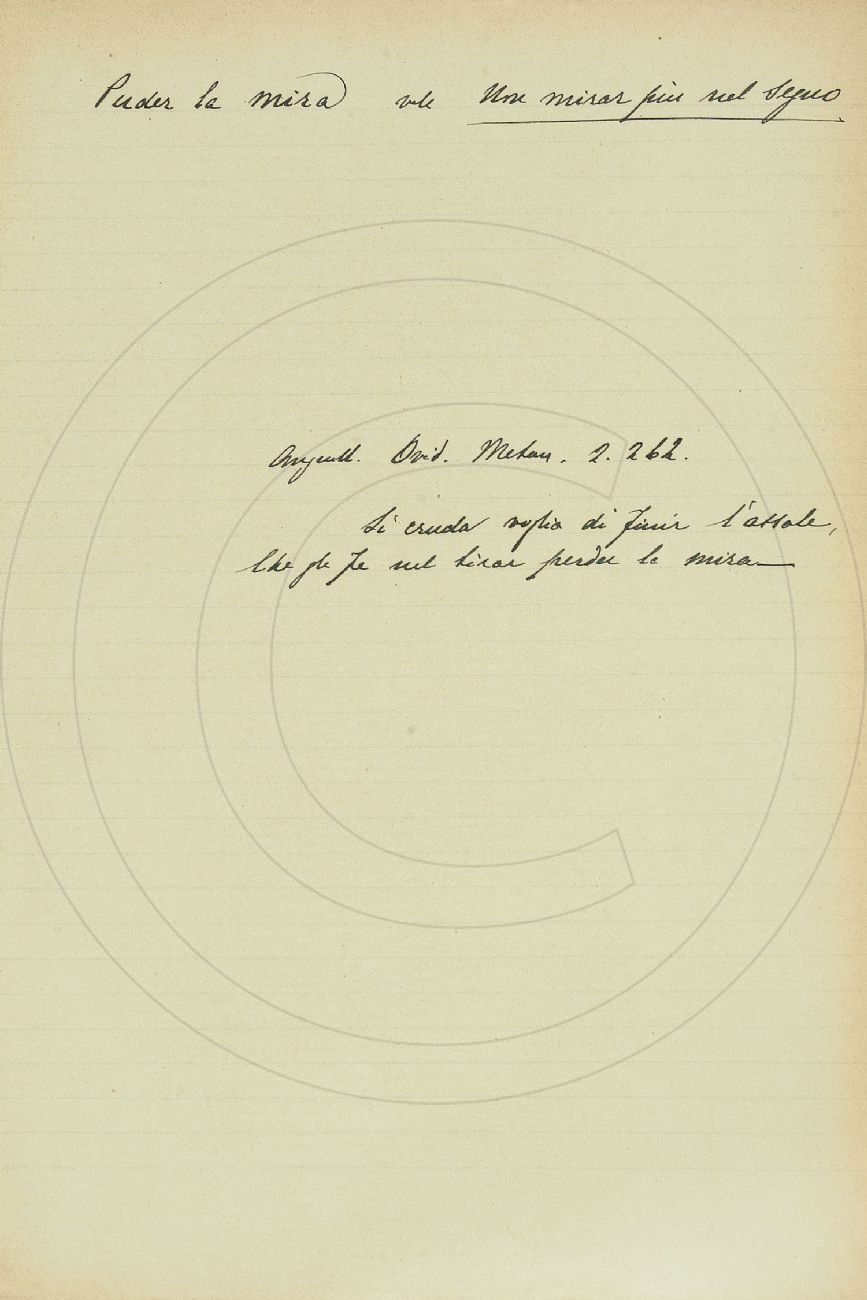 Perder la mira vle Non mirar più nel segno
Anguill. Ovid. Metam. 2. 262.
Sì cruda voglia di finir l'assale,
Che gle fe nel tirar perder la mira